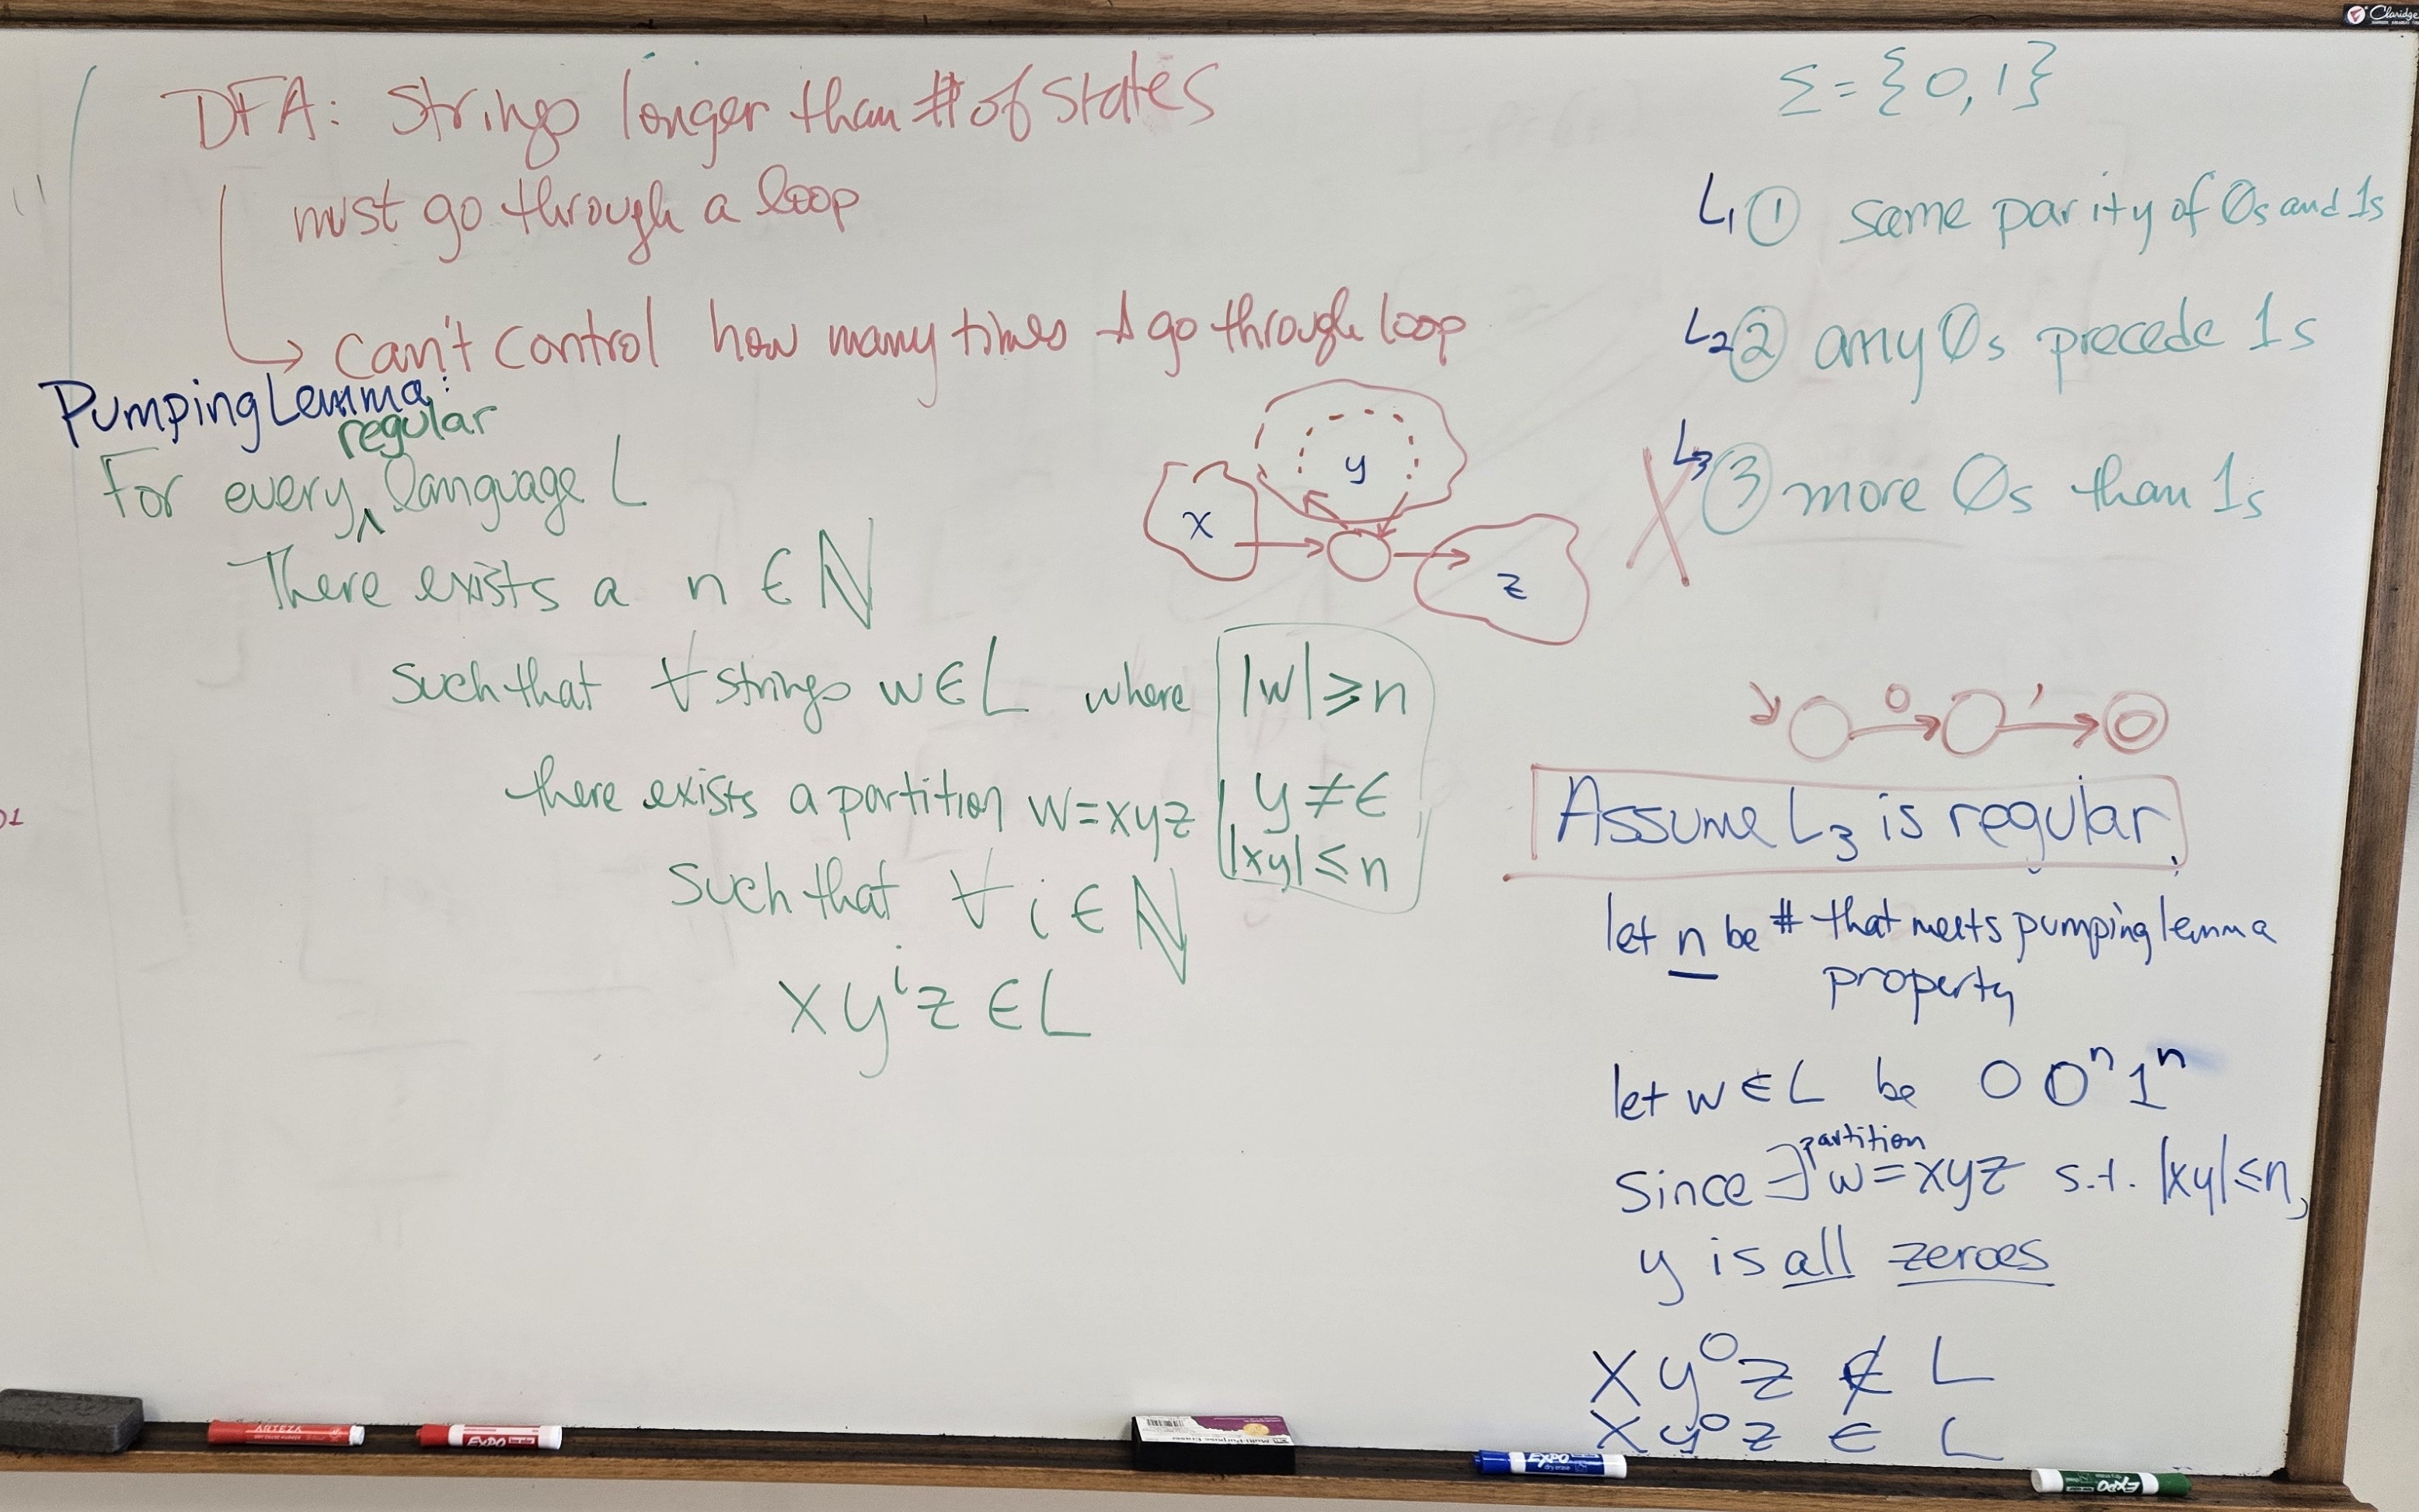 DFA: Strings longer than # of states
must go through a loop
can't control how many times I go through loop
Pumping Lemma:
regular
For every ^ language L
There exists a n ∈ ℕ
such that ∀ strings w ∈ L where |w| ⩾ n
there exists a partition w=xyz y ≠ ϵ
|xy| ≤ n
such that ∀ i ∈ ℕ
xyⁱz ∈ L
x
y
z
Σ = {0,1}
L₁ ① same parity of 0s and 1s
L₂ ② any 0s precede 1s
L₃ ③ more 0s than 1s
0 1
Assume L₃ is regular.
let n be # that meets pumping lemma
property
let w ∈ L be 0 0ⁿ 1ⁿ
partition
Since ∃ w=xyz s.t. |xy| ≤ n,
y is all zeroes
xy⁰z ∉ L
xy⁰z ∈ L
Claridge
ARTEZA
EXPO
EXPO
dry erase
EXPO